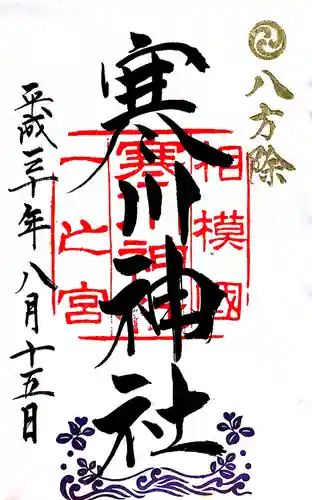 八方除
寒川神社
相模國
一之宮
平成三十年八月十五日